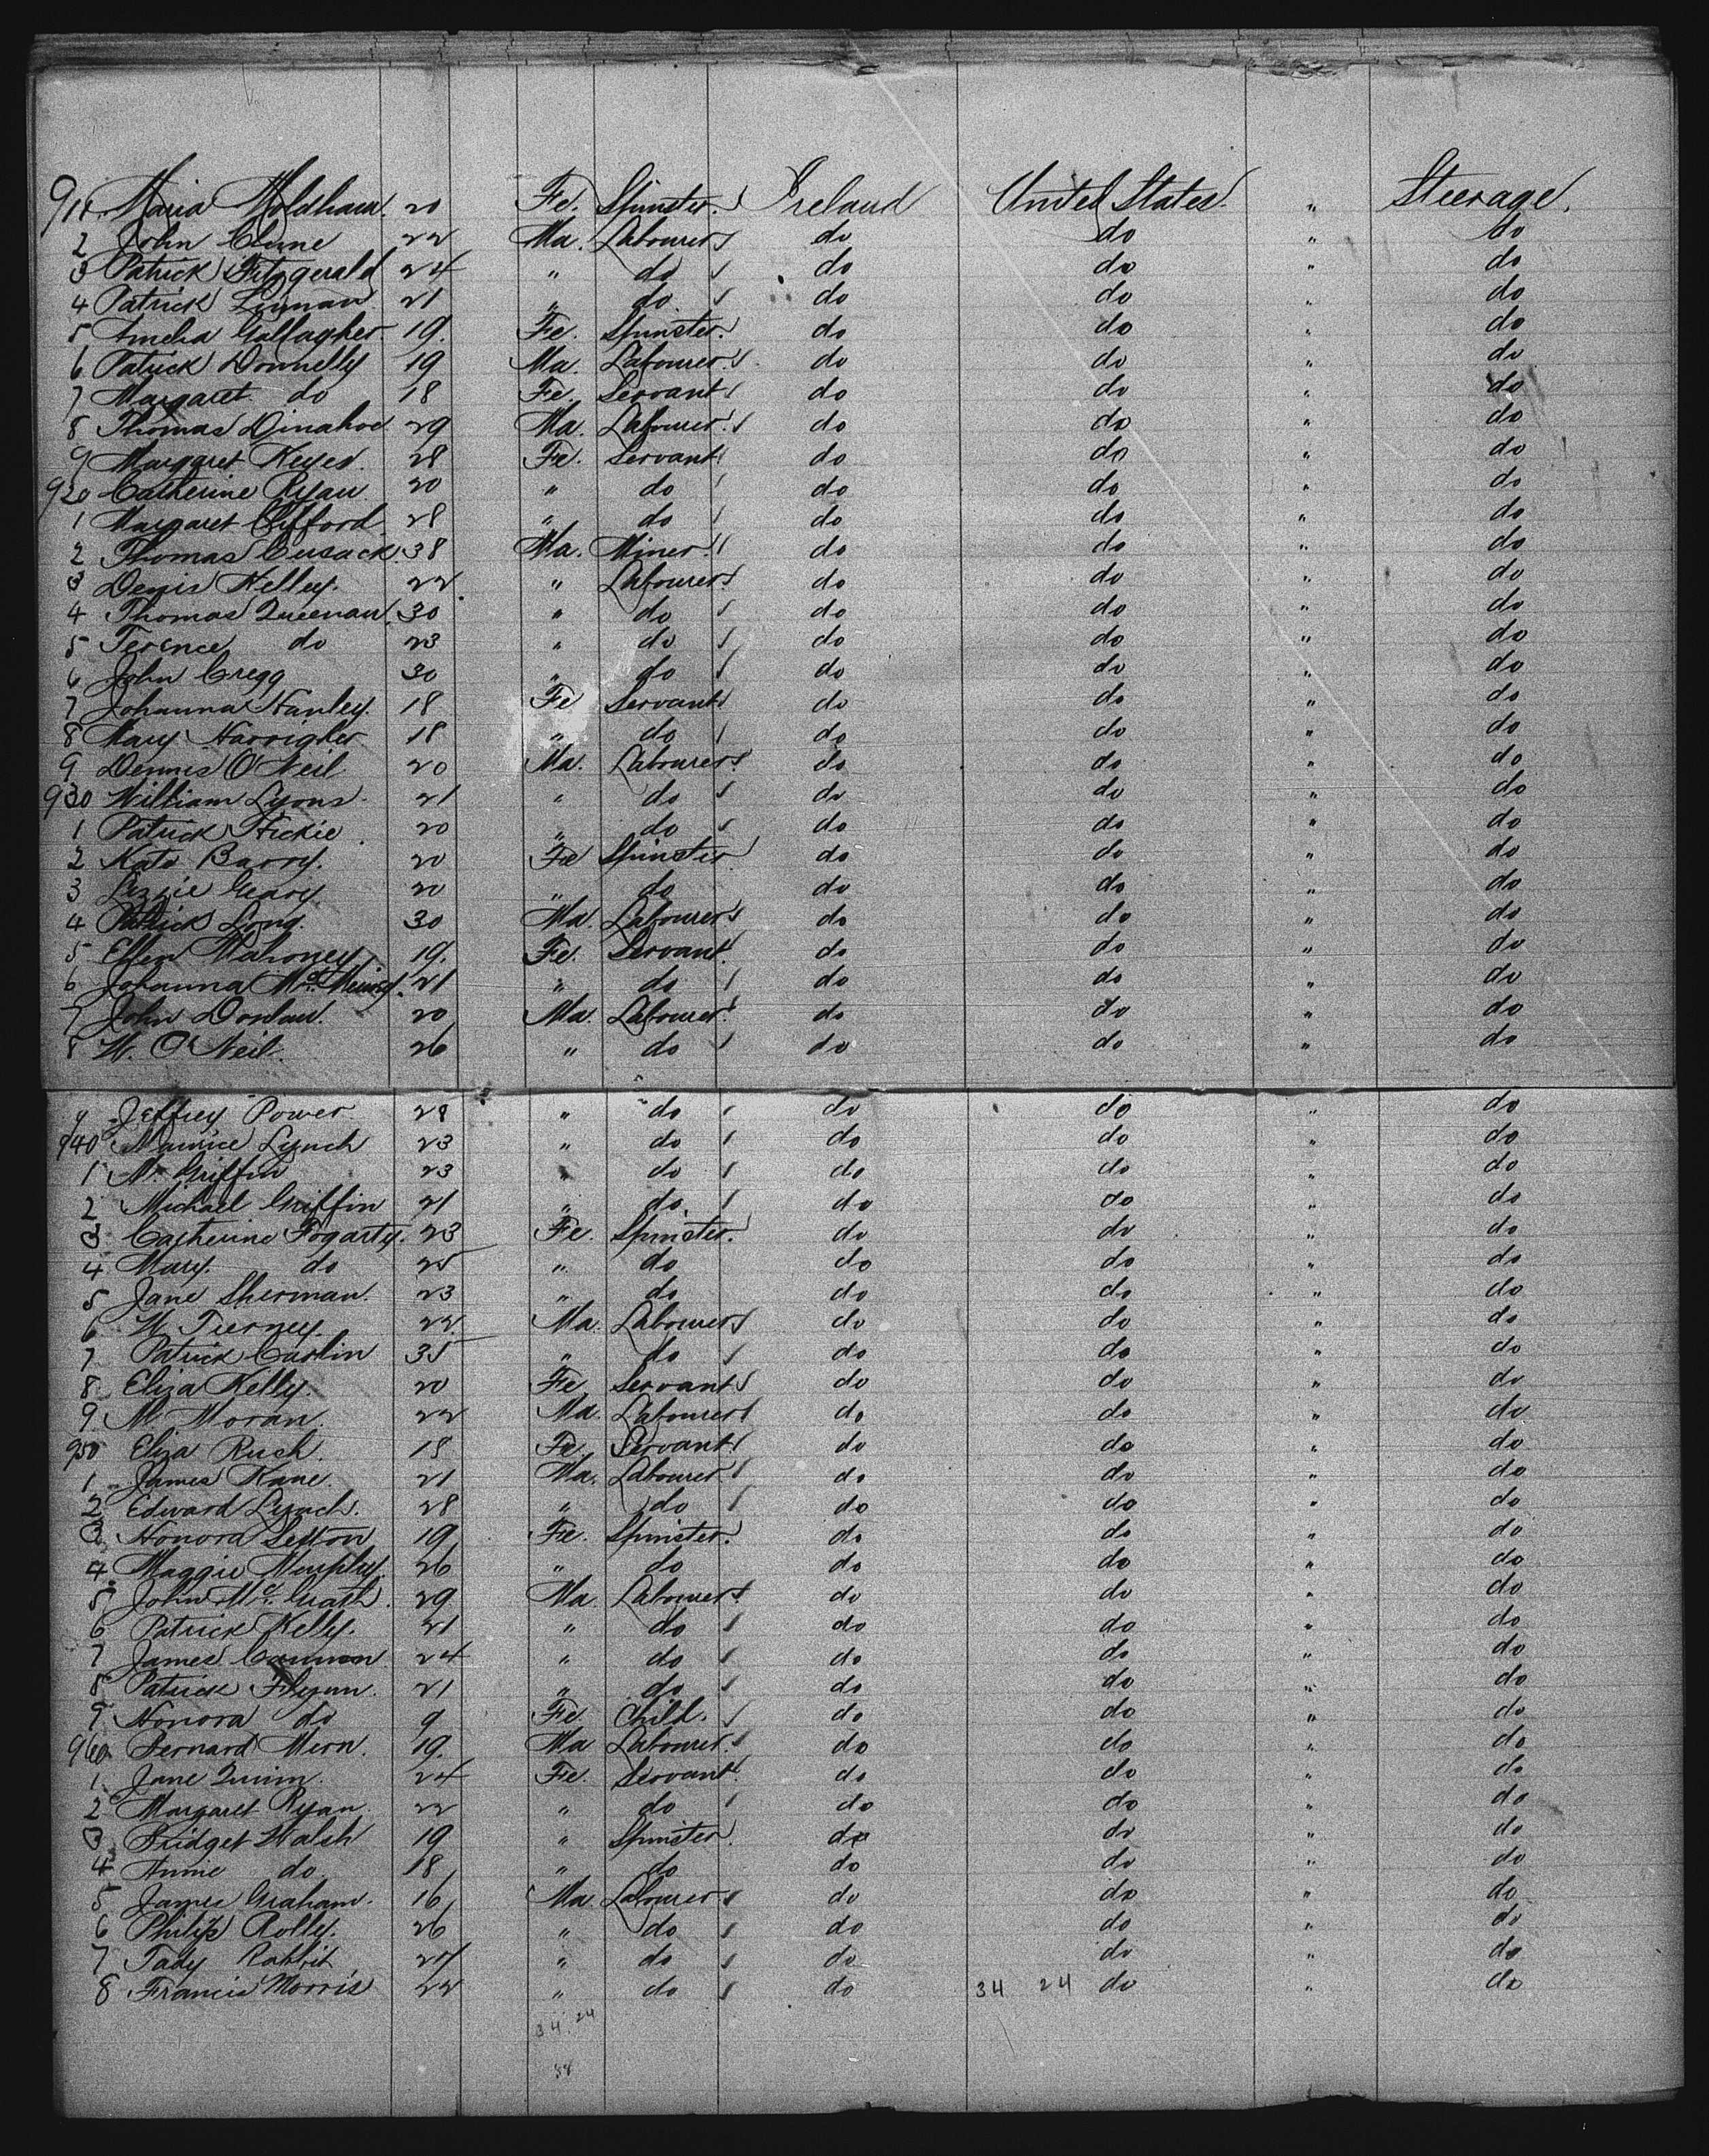 911 Maria Moldham. 20 Fe. Spinster. Ireland United States. " Steerage.
2 John Clune 22 Ma. Labourer do do " do
3 Patrick Fitzgerald 24 " do do do " do
4 Patrick Linnan 21 " do do do " do
5 Amelia Gallagher. 19. Fe. Spinster. do do " do
6 Patrick Donnelly 19 Ma. Labourer. do do " do
7 Margaret do 18 Fe. Servant do do " do
8 Thomas Dinahoe 29 Ma. Labourer. do do " do
9 Margaret Keyes. 28 Fe. Servant do do " do
920 Catherine Ryan 20 " do do do " do
1 Margaret Clifford 28 " do do do " do
2 Thomas Cusack. 38 Ma. Miner. do do " do
3 Denis Kelley. 22 " Labourer. do do " do
4 Thomas Queenan. 30 " do do do " do
5 Terence do 23 " do do do " do
6 John Cregg 30 " do do do " do
7 Johanna Hanley. 18 Fe Servant do do " do
8 Mary 18 " do do do " do
9 Dennis O'Neil 20 Ma. Labourer. do do " do
930 William Lyons. 21 " do do do " do
1 Patrick Hickie. 20 " do do do " do
2 Kate Barry. 20 Fe Spinster do do " do
3 Lizzie Geary 20 " do do do " do
4 Patrick Long. 30 Ma. Labourer do do " do
5 Ellen Mahoney 19. Fe. Servant. do do " do
6 Johanna 21 " do do do " do
7 John Donlan. 20 Ma. Labourer. do do " do
8 W. O'Neil. 26 " do do do " do
9 Jeffrey Power 28 " do do do " do
940 Maurice Lynch 23 " do do do " do
1 Griffin 23 " do do do " do
2 Michael Griffin 21 " do do do " do
3 Catherine Fogarty. 23 Fe. Spinster. do do " do
4 Mary. do 25 " do do do " do
5 Jane Sherman. 23 " do do do " do
6 W Tierney. 22 Ma. Labourer do do " do
7 Patrick Carlin 35 " do do do " do
8 Eliza Kelly. 20 Fe Servant do do " do
9 M Moran. 22 Ma. Labourer do do " do
950 Eliza Ruch. 18 Fe. Servant. do do " do
1 James Kane. 21 Ma. Labourer. do do " do
2 Edward Lynch. 28 " do do do " do
3 Honora Sexton 19 Fe. Spinster. do do " do
4 Maggie Murphy. 26 " do do do " do
5 John McGrath. 29 Ma Labourer. do do " do
6 Patrick Kelly. 21 " do do do " do
7 James Cannon 24 " do do do " do
8 Patrick Flynn. 21 " do do do " do
9 Honora do 9 Fe Child. do do " do
960 Bernard Mern. 19. Ma Labourer. do do " do
1 Jane Quinn. 24 Fe. Servant. do do " do
2 Margaret Ryan 22 " do do do " do
3 Bridget Walsh 19 " Spinster. do do " do
4 Annie do 18 " do do do " do
5 James Graham. 16 Ma. Labourer do do " do
6 Philip Rolly. 26 " do do do " do
7 Tady Rabbit " do do do " do
8 Francis Morris 22 " do do 34 24 do " do
34. 24
58